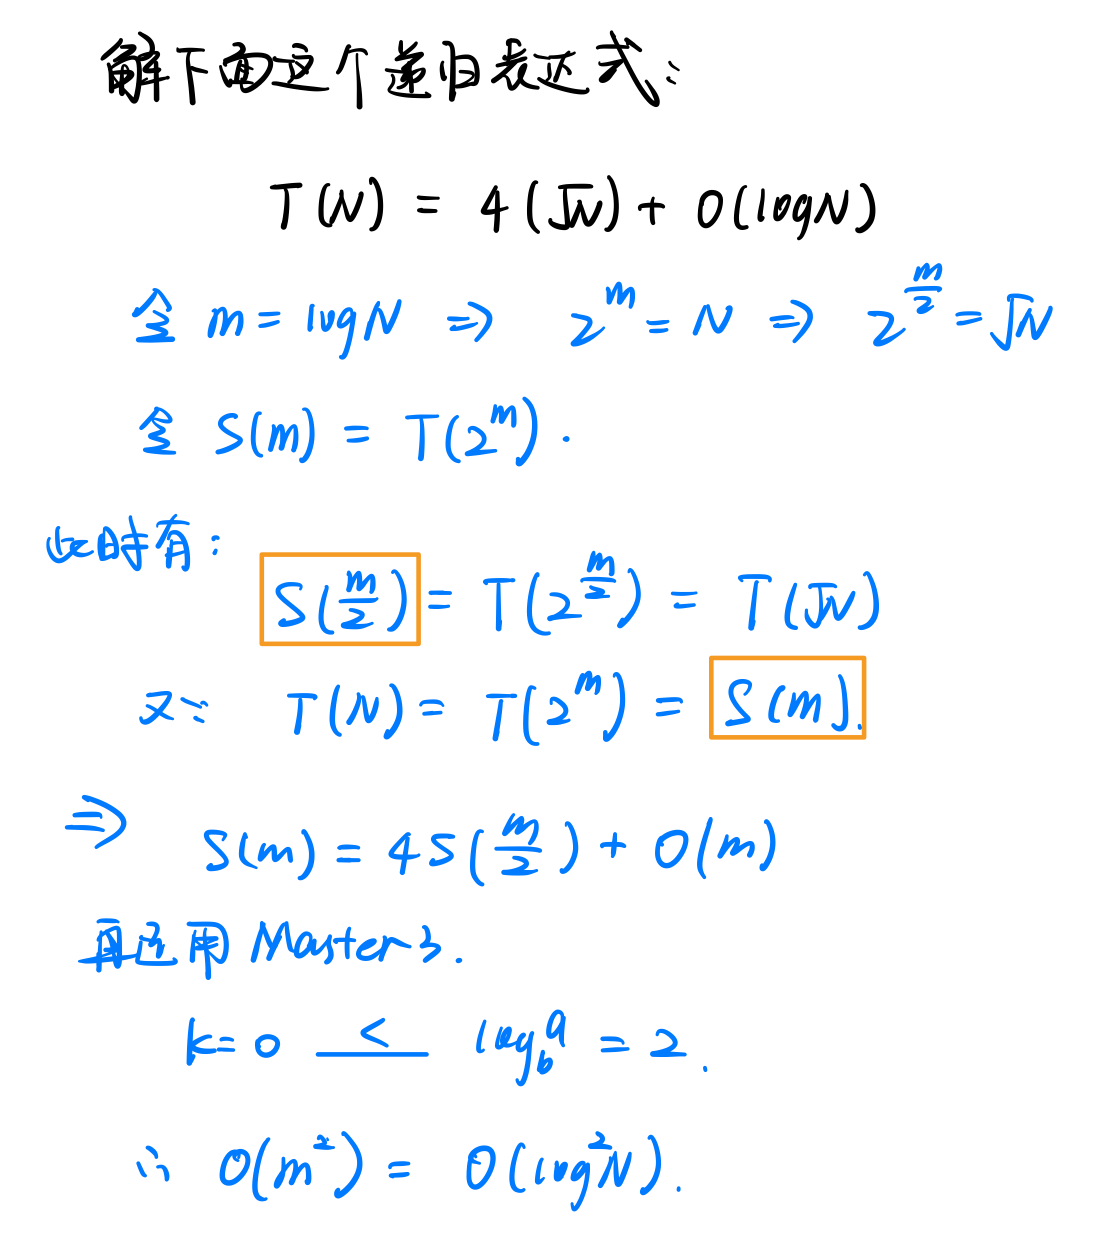 解下面这个递归表达式:
T(N) = 4(√N) + O(logN)
令 m = logN ⇒ 2^m = N ⇒ 2^(m/2) = √N
令 S(m) = T(2^m).
此时有:
S(m/2) = T(2^(m/2)) = T(√N)
又∵ T(N) = T(2^m) = S(m).
⇒ S(m) = 4S(m/2) + O(m)
再运用 Master 3.
k=0 < log_b^a = 2.
∴ O(m^2) = O(log^2N).